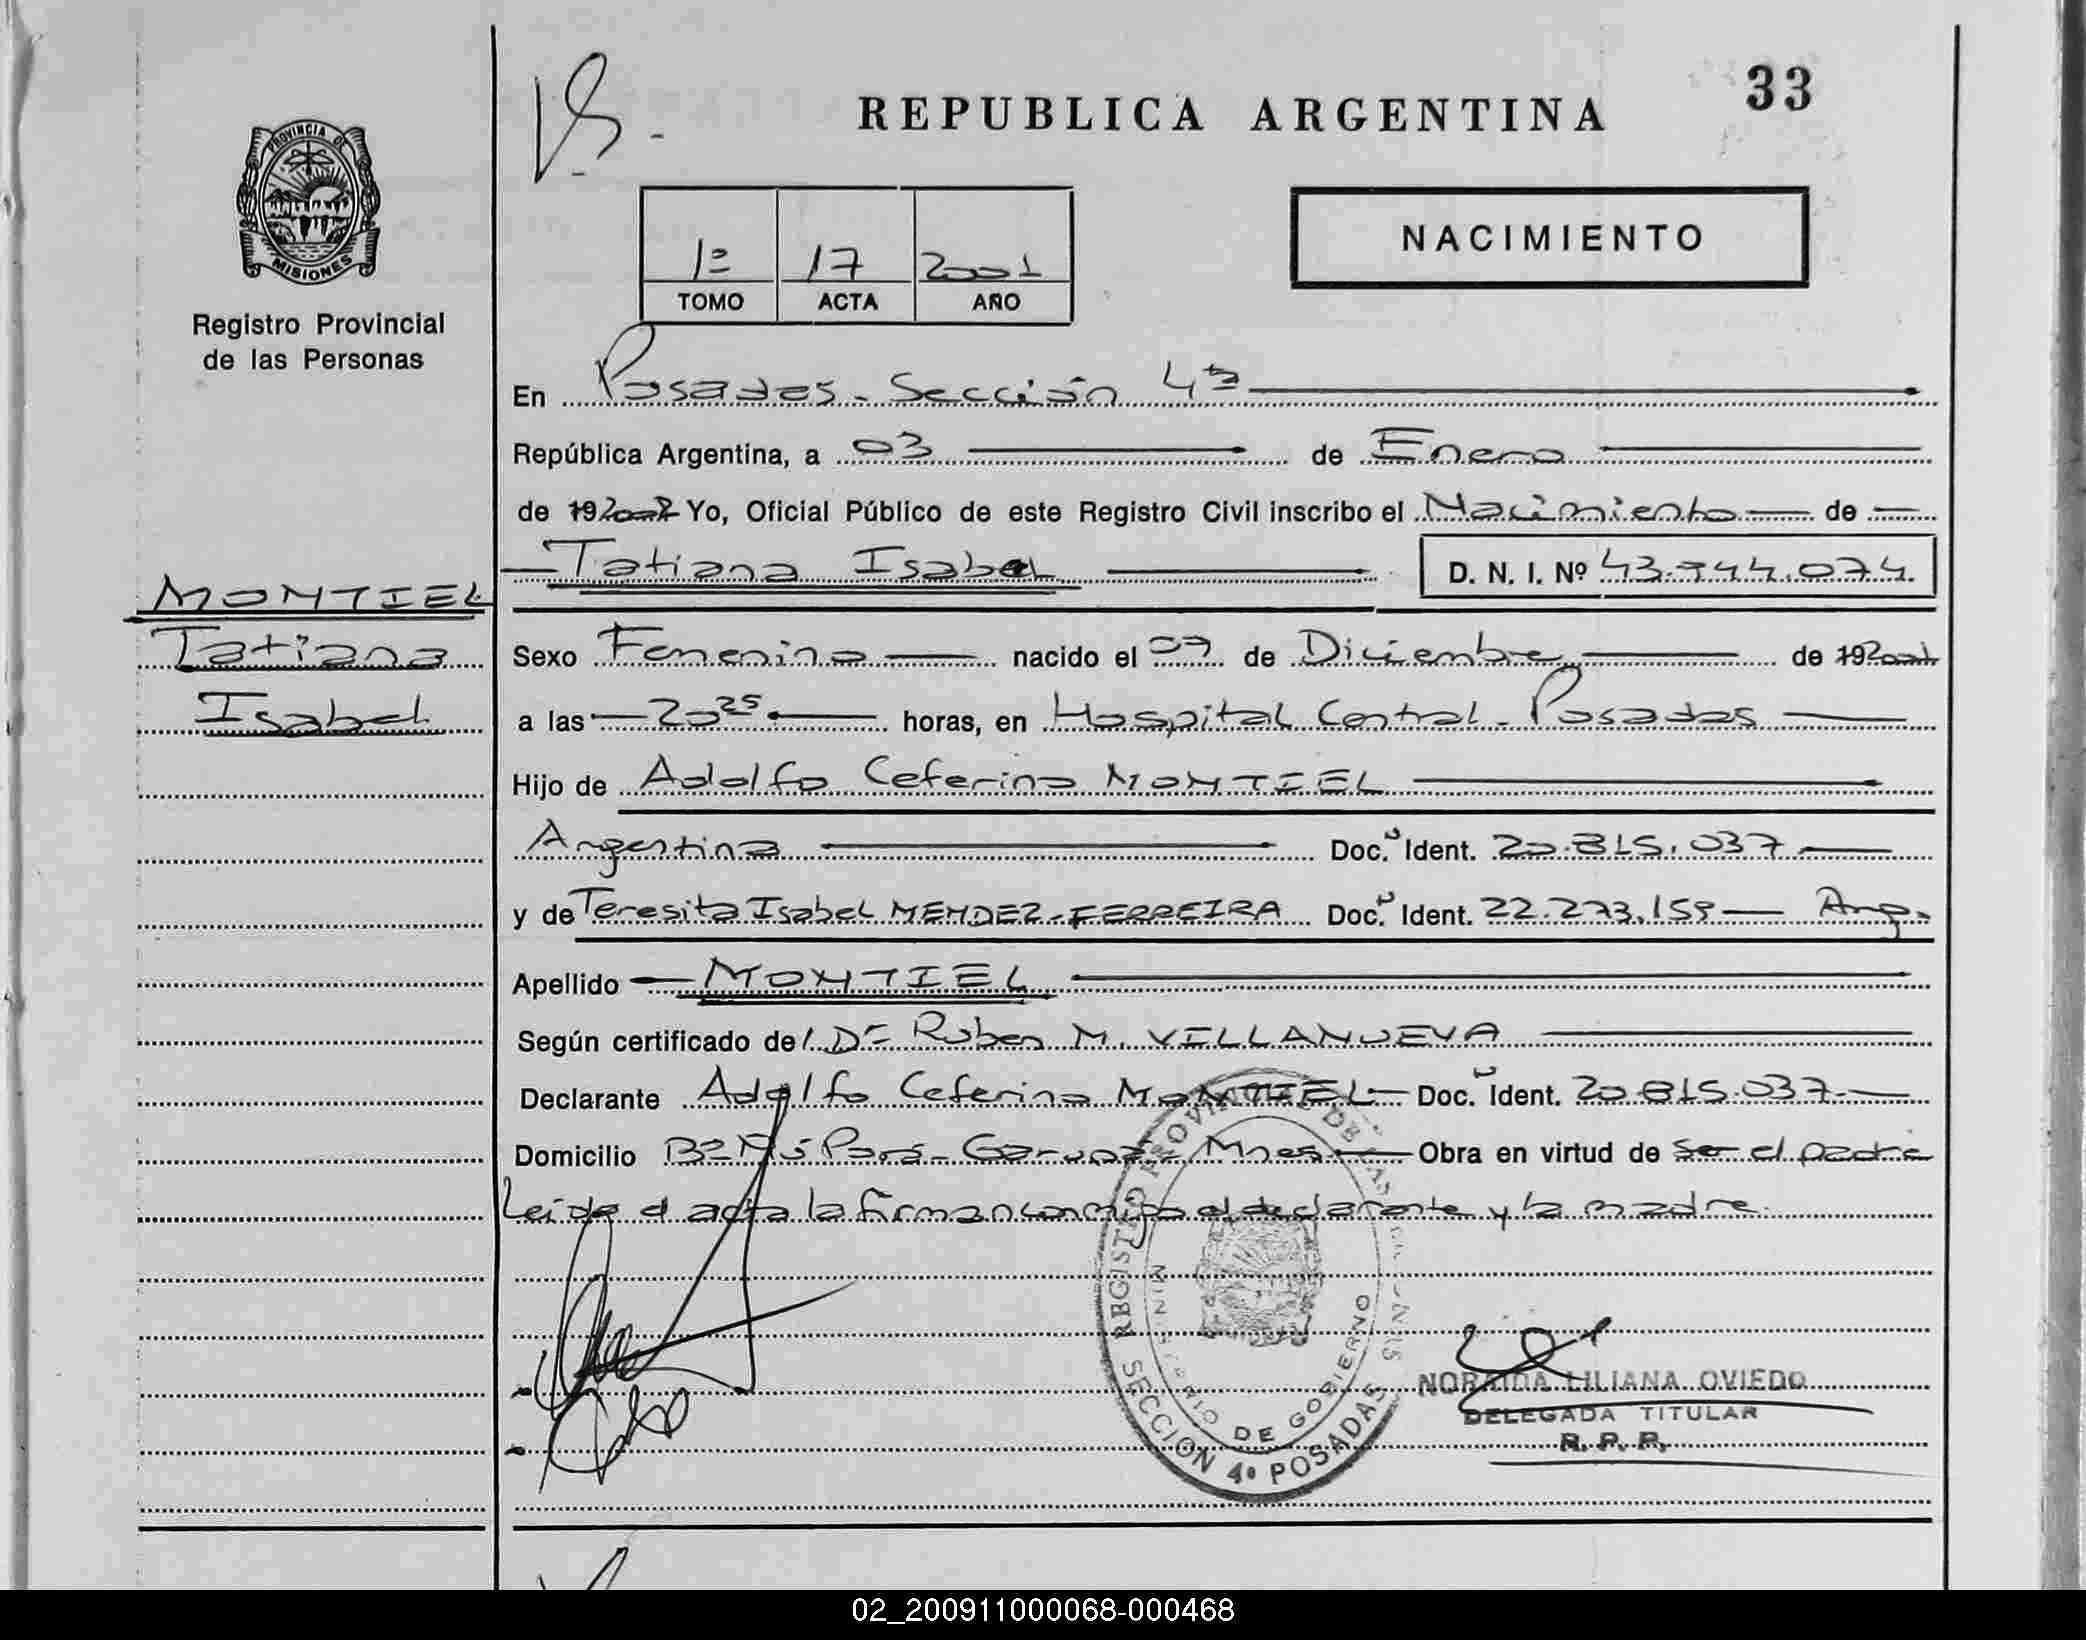 33
REPUBLICA ARGENTINA
PROVINCIA DE
MISIONES
Registro Provincial
de las Personas
NACIMIENTO
1º 17 2001
TOMO ACTA AÑO
En Posadas - Sección 4ta
República Argentina, a 03 de Enero
de Yo, Oficial Público de este Registro Civil inscribo el Nacimiento de
Tatiana Isabel D. N. I. Nº 43.744.074
MONTIEL
Tatiana
Isabel
Sexo Femenino nacido el 07 de Diciembre de 192001
a las 20 25 horas, en Hospital Central - Posadas
Hijo de Adolfo Ceferino MONTIEL
Argentina Doc. Ident. 20.815.037
y de Teresita Isabel MENDEZ - FERREIRA Doc. Ident. 22.273.159 Arg.
Apellido MONTIEL
Según certificado de Dr Ruben M. VILLANUEVA
Declarante Adolfo Ceferino MONTIEL Doc. Ident. 20.815.037
Domicilio Bº Pará - Garupá - Mnes Obra en virtud de ser el padre
Leida el acta la firman conmigo el declarante y la madre.
REGISTRO PROVINCIAL DE LAS PERSONAS
MINISTERIO DE GOBIERNO
SECCION 4º POSADAS
NORAIDA LILIANA OVIEDO
DELEGADA TITULAR
R. P. P.
02_200911000068-000468